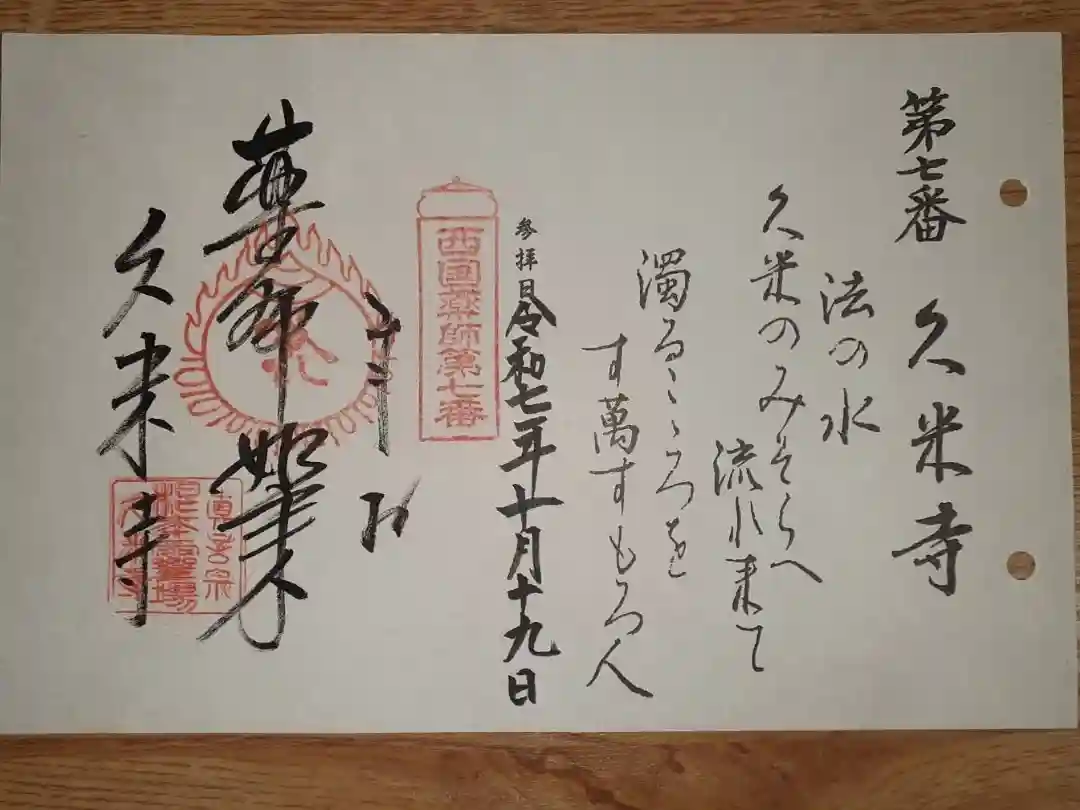 第七番 久米寺
法の水
久米のみそらへ
流れ来て
濁るゝころを
す萬すもろ人
参拝日 令和七年十月十九日
西国薬師第七番
奉拝
薬師如来
久米寺
真言宗
根本霊場
久米寺